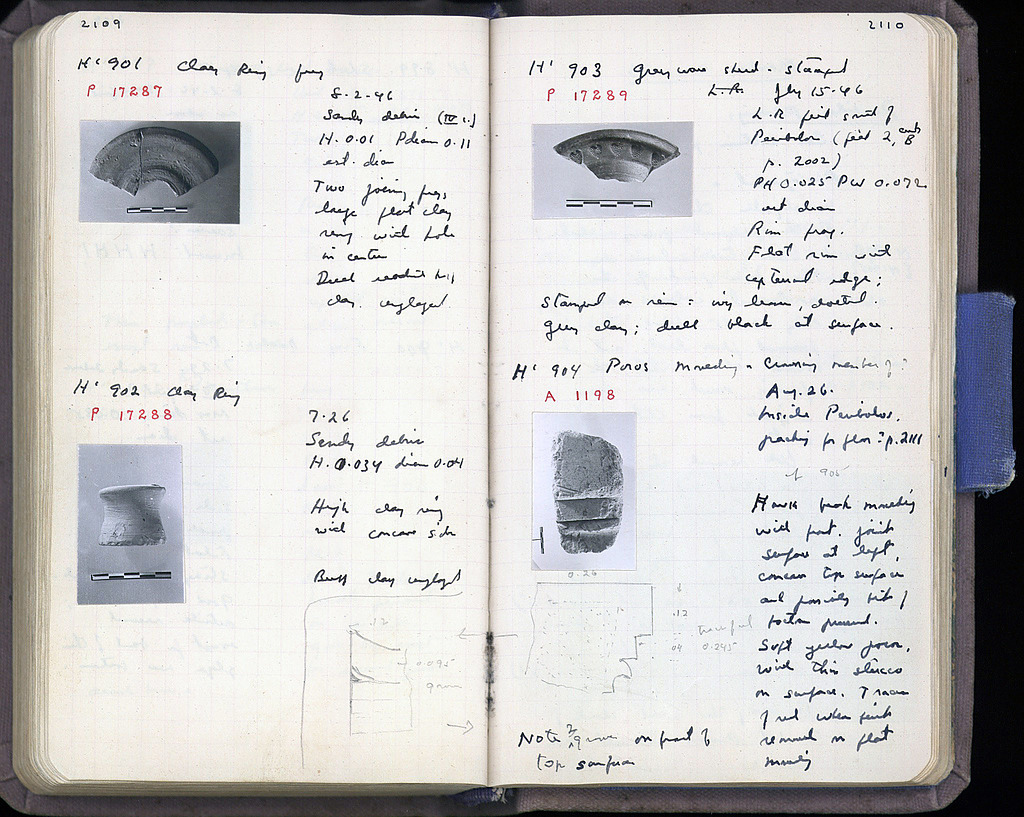 2109
H' 901 Clay Ring frag
P 17287
8-2-46
Sandy debris (IV c.)
H. 0.01 P diam 0.11
est. diam
Two joining frags,
large flat clay
ring with hole
in center
clay. unglazed.
H' 902 Clay Ring
P 17288
7.26
Sandy debris
H. 0.034 diam 0.04
High clay ring
with concave side
Buff clay unglazed
.12
0.095
2110
H' 903 Gray ware sherd - stamped
P 17289
L.R. July 15-46
L.R. pit south of
Peribolos (pit 2,
p. 2002)
PH 0.025 PW 0.072
est diam
Rim frag.
Flat rim with
edge;
stamped on rim: ivy leaves, dotted.
Grey clay; dull black at surface.
H' 904 Poros moulding - Crowning member of?
A 1198
Aug. 26.
Inside Peribolos,
packing for floor? p. 2111
cf 905
Hawk beak moulding
with part joint
surface at left,
concave top surface
and possibly bit of
bottom preserved.
Soft yellow poros,
with thin stucco
on surface. Traces
of red where paint
remained on flat
moulding
0.26
.12
.04 0.245
Note groove on front of
top surface